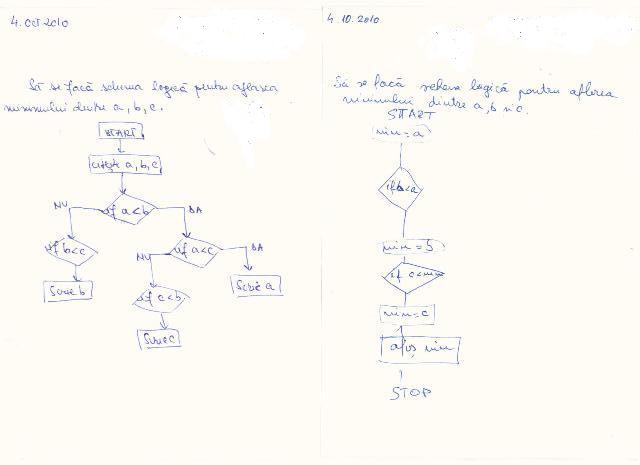 4. OCT 2010
Să se facă schema logică pentru aflarea
minimului dintre a, b, c.
START
citește a, b, c
if a<b
NU
DA
if b<c
if a<c
NU
DA
Scrie b
if c<b
Scrie a
Scrie c
4. 10. 2010
Să se facă schema logică pentru aflarea
minimului dintre a, b și c.
START
min = a
if b<a
min = b
if c<min
min = c
afiș min
STOP